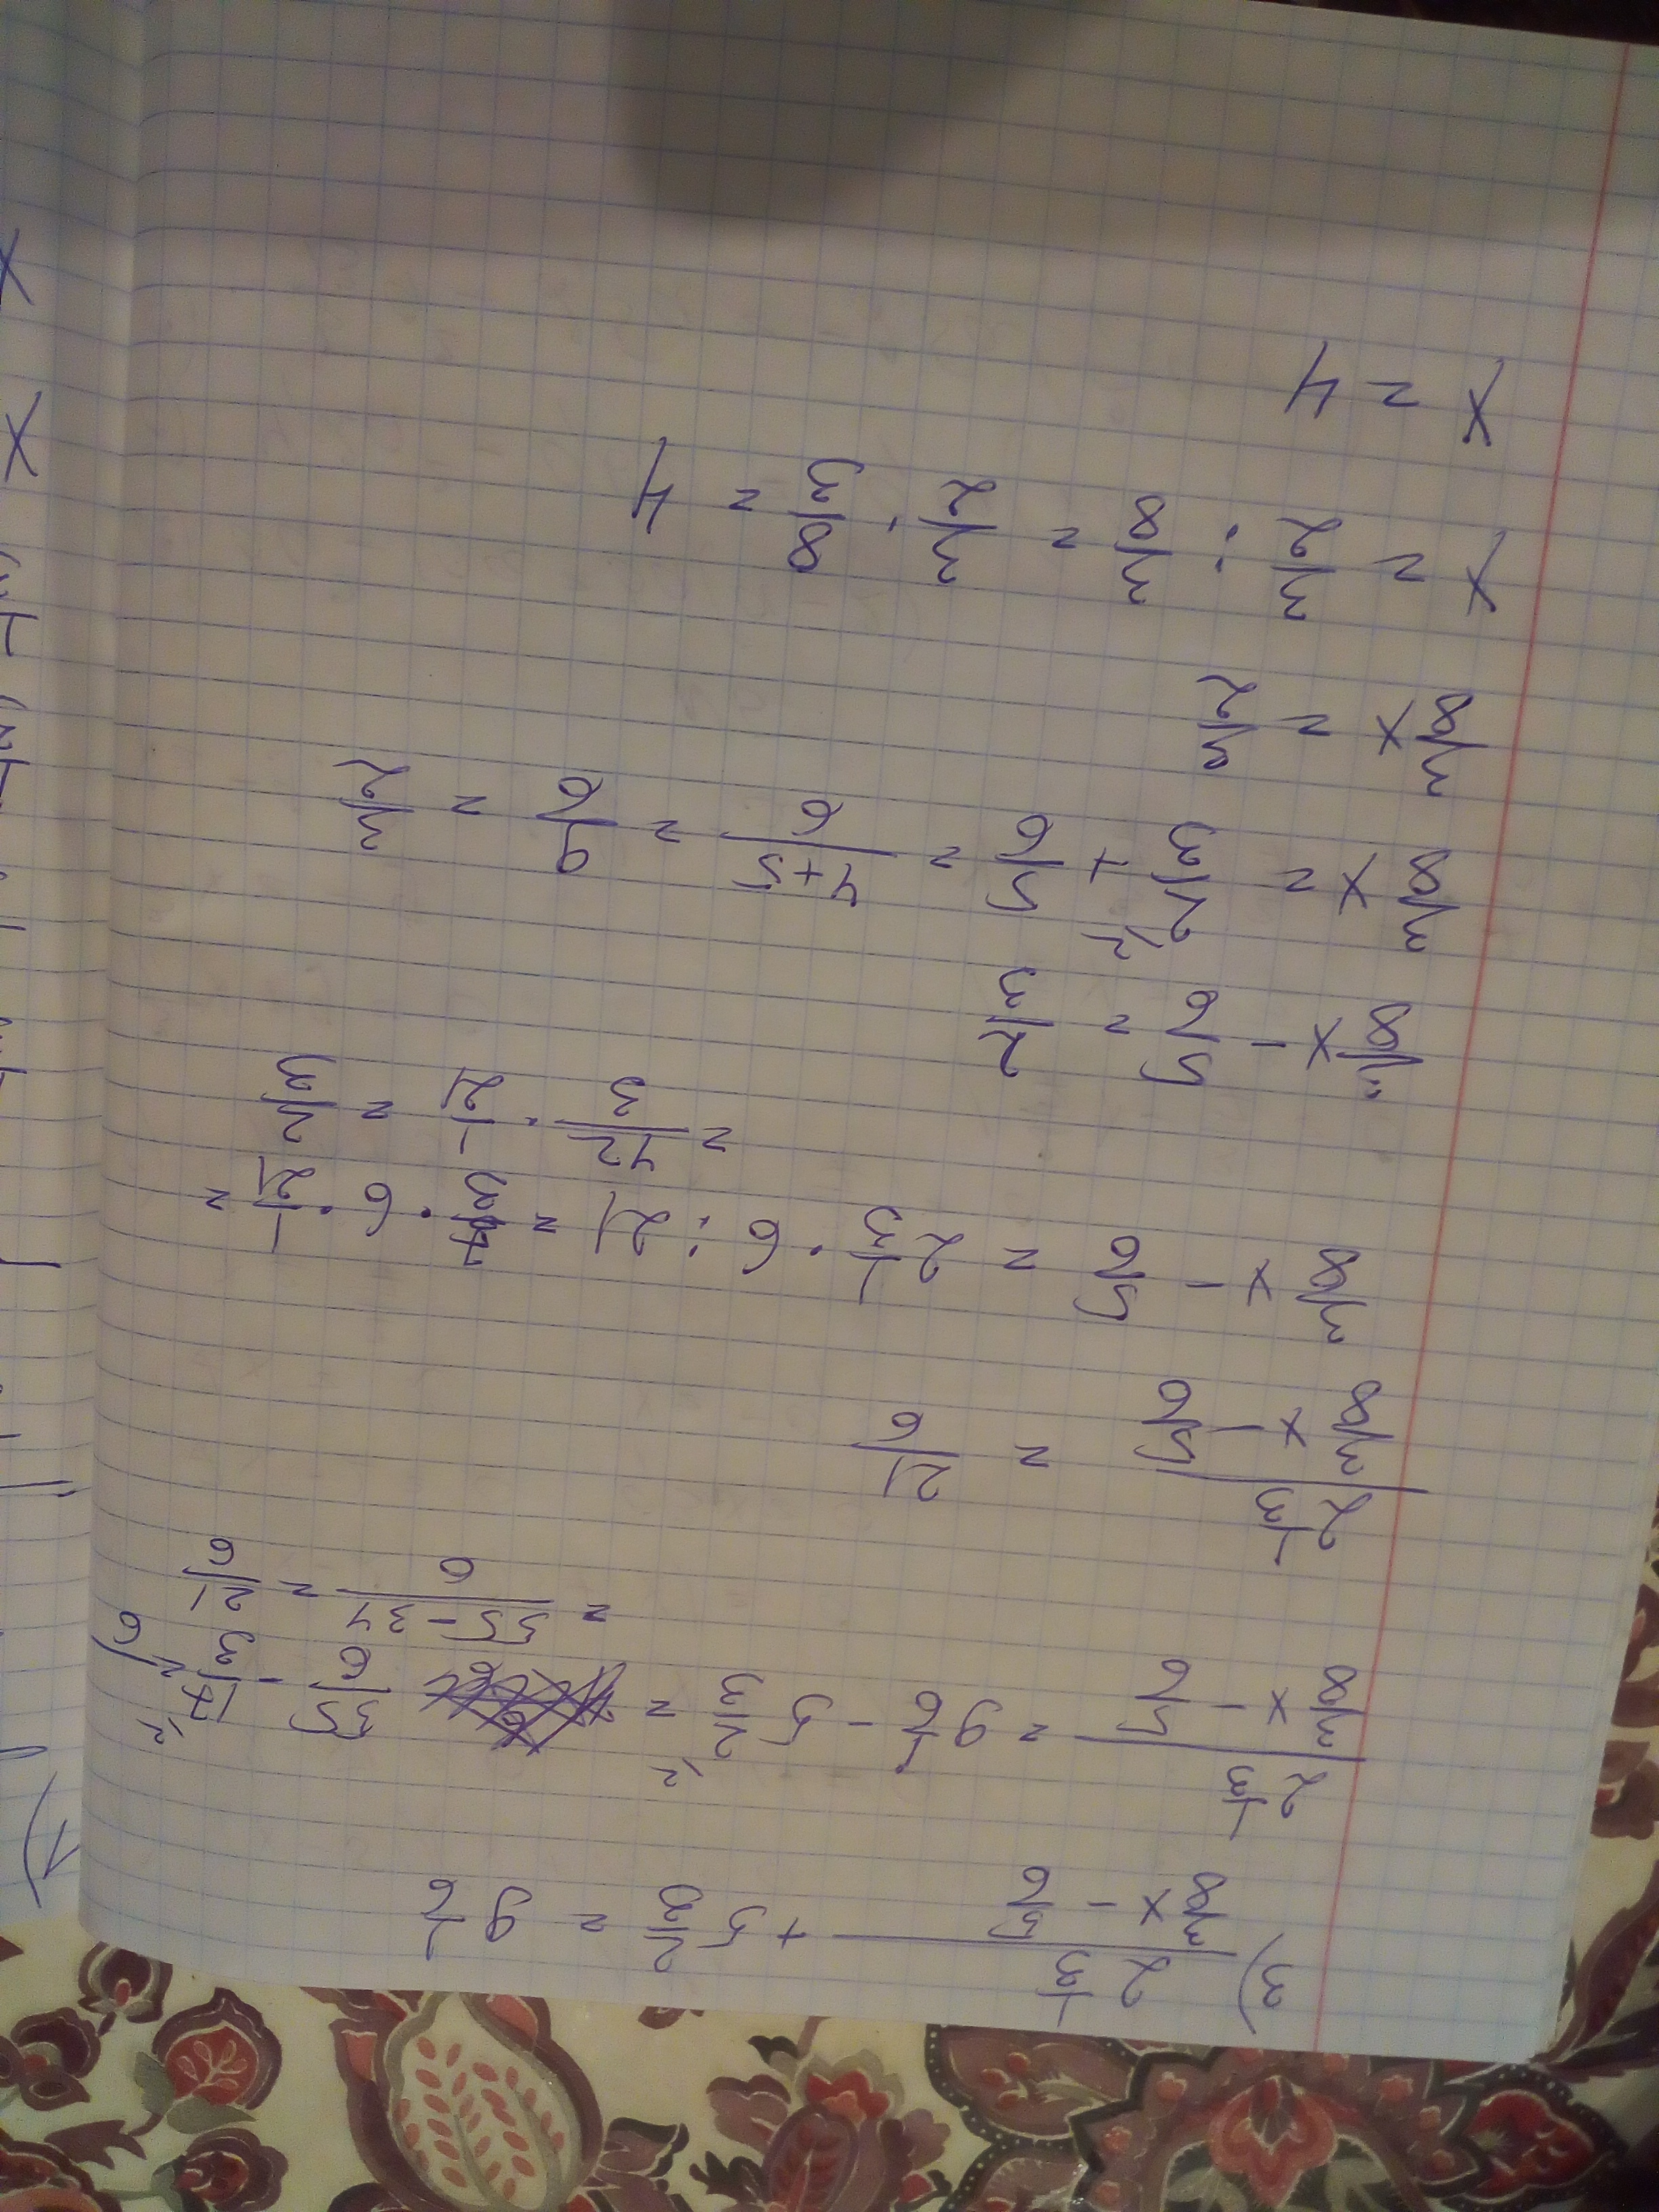 3) (2 1/3)/(3/8 x - 5/6) + 5 2/3 = 9 1/6
(2 1/3)/(3/8 x - 5/6) = 9 1/6 - 5 2/3 \2 = 55/6 - 17/3 \2 =
= (55-34)/6 = 21/6
(2 1/3)/(3/8 x - 5/6) = 21/6
3/8 x - 5/6 = 2 1/3 · 6 : 21 = 7/3 · 6 · 1/21 =
= 42/3 · 1/21 = 2/3
3/8 x - 5/6 = 2/3
3/8 x = 2/3 \2 + 5/6 = (4+5)/6 = 9/6 = 3/2
3/8 x = 3/2
x = 3/2 : 3/8 = 3/2 · 8/3 = 4
x = 4